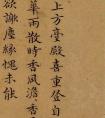 上方臺殿喜重登自
華雨散時香風澹香
欲謝塵緣愧未能